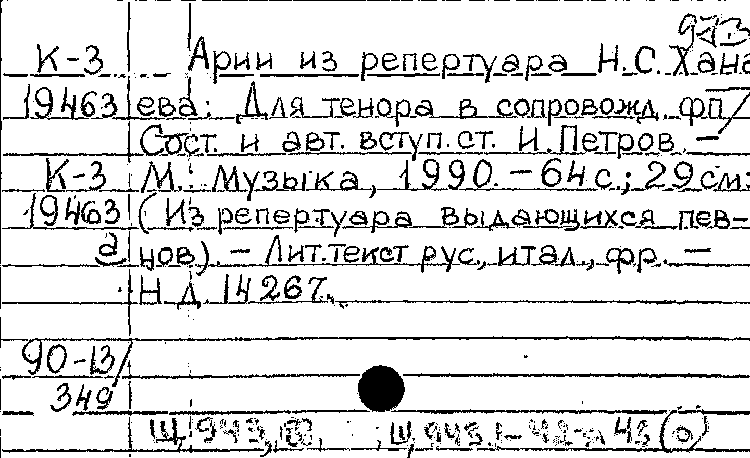 973
К-3 Арии из репертуара Н.С. Хана
19463 ева: Для тенора в сопровожд. фп /
Сост. и авт. вступ. ст. И. Петров. –
К-3 М.: Музыка, 1990. – 64 с.; 29 см.
19463 (Из репертуара выдающихся пев-
а цов). – Лит. текст рус., итал., фр. –
Н.д. 14267.
90-13/
349
Щ 943,